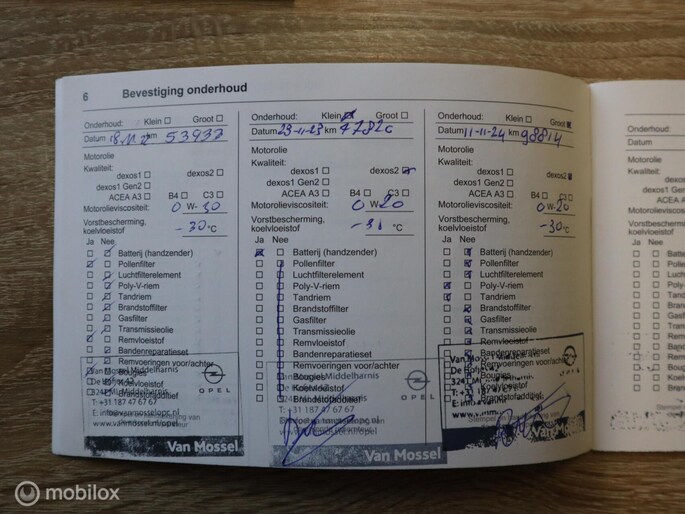 6 Bevestiging onderhoud
Onderhoud: Klein Groot
Datum km 53937
Motorolie
Kwaliteit:
dexos1 dexos2
dexos1 Gen2
ACEA A3 B4 C3
Motorolieviscositeit: 0 W- 30
Vorstbescherming,
koelvloeistof -30 °C
Ja Nee
Batterij (handzender)
Pollenfilter
Luchtfilterelement
Poly-V-riem
Tandriem
Brandstoffilter
Gasfilter
Transmissieolie
Remvloeistof
Bandenreparatieset
Remvoeringen voor/achter
Bougies
Koelvloeistof
Brandstofadditief
Van Mossel Middelharnis
T: +31 187 47 67 67
E: info@vanmosselopc.nl
www.vanmossel.nl/opel
OPEL
Van Mossel
Onderhoud: Klein Groot
Datum 23-11-23 km
Motorolie
Kwaliteit:
dexos1 dexos2
dexos1 Gen2
ACEA A3 B4 C3
Motorolieviscositeit: 0 W- 20
Vorstbescherming,
koelvloeistof -31 °C
Ja Nee
Batterij (handzender)
Pollenfilter
Luchtfilterelement
Poly-V-riem
Tandriem
Brandstoffilter
Gasfilter
Transmissieolie
Remvloeistof
Bandenreparatieset
Remvoeringen voor/achter
Bougies
Koelvloeistof
Brandstofadditief
Middelharnis
T: +31 187 47 67 67
OPEL
Van Mossel
Onderhoud: Klein Groot
Datum 11-11-24 km 98814
Motorolie
Kwaliteit:
dexos1 dexos2
dexos1 Gen2
ACEA A3 B4 C3
Motorolieviscositeit: 0 W- 20
Vorstbescherming,
koelvloeistof -30 °C
Ja Nee
Batterij (handzender)
Pollenfilter
Luchtfilterelement
Poly-V-riem
Tandriem
Brandstoffilter
Gasfilter
Transmissieolie
Remvloeistof
Bandenreparatieset
Remvoeringen voor/achter
Bougies
Koelvloeistof
Brandstofadditief
OPEL
Van Mossel
Onderhoud:
Datum
Motorolie
Kwaliteit:
Ja Nee
mobilox